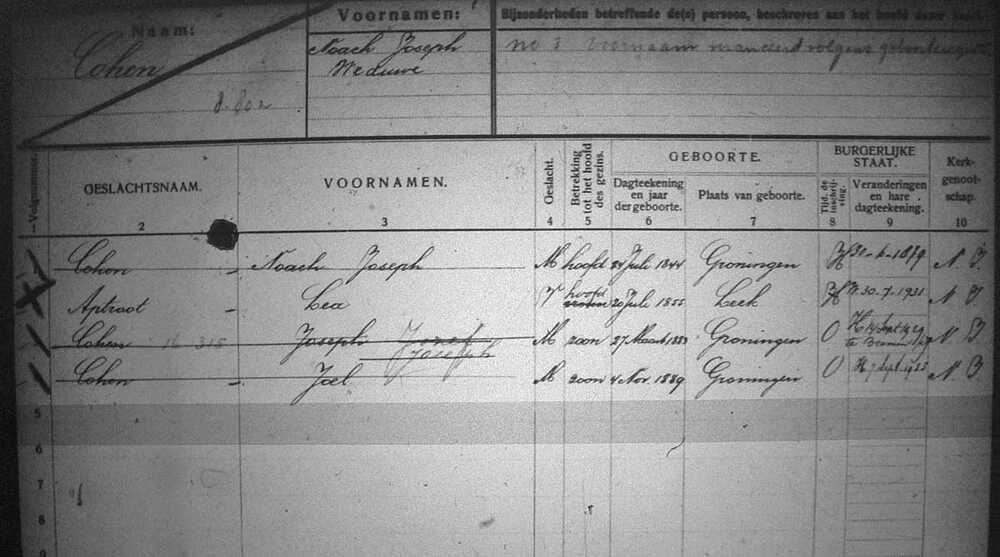 Naam:
Cohen
8.802
Voornamen:
Noach Joseph
Weduwe
Bijzonderheden betreffende de(n) persoon, beschreven aan het hoofd dezer
no 3 voornaam veranderd volgens
Volgnummer.
GESLACHTSNAAM.
2
VOORNAMEN.
3
Geslacht.
4
Betrekking tot het hoofd des gezins.
5
GEBOORTE.
Dagteekening en jaar der geboorte.
6
Plaats van geboorte.
7
BURGERLIJKE STAAT.
Tijd. de inschrijving.
8
Veranderingen en hare dagteekening.
9
Kerkgenootschap.
10
Cohen Noach Joseph M hoofd 24 Juli 1844 Groningen H 30-6-1879 N. I.
Aptroot Lea V hoofd vrouw 20 Juli 1855 Leek H W. 30-7-1931 N I
Cohen 16 315 Joseph Jozef Joseph M zoon 27 Maart 1883 Groningen O H N. I
Cohen Joel M zoon 4 Nov. 1889 Groningen O H 7 Sept. N. I
5
6
7
8
9